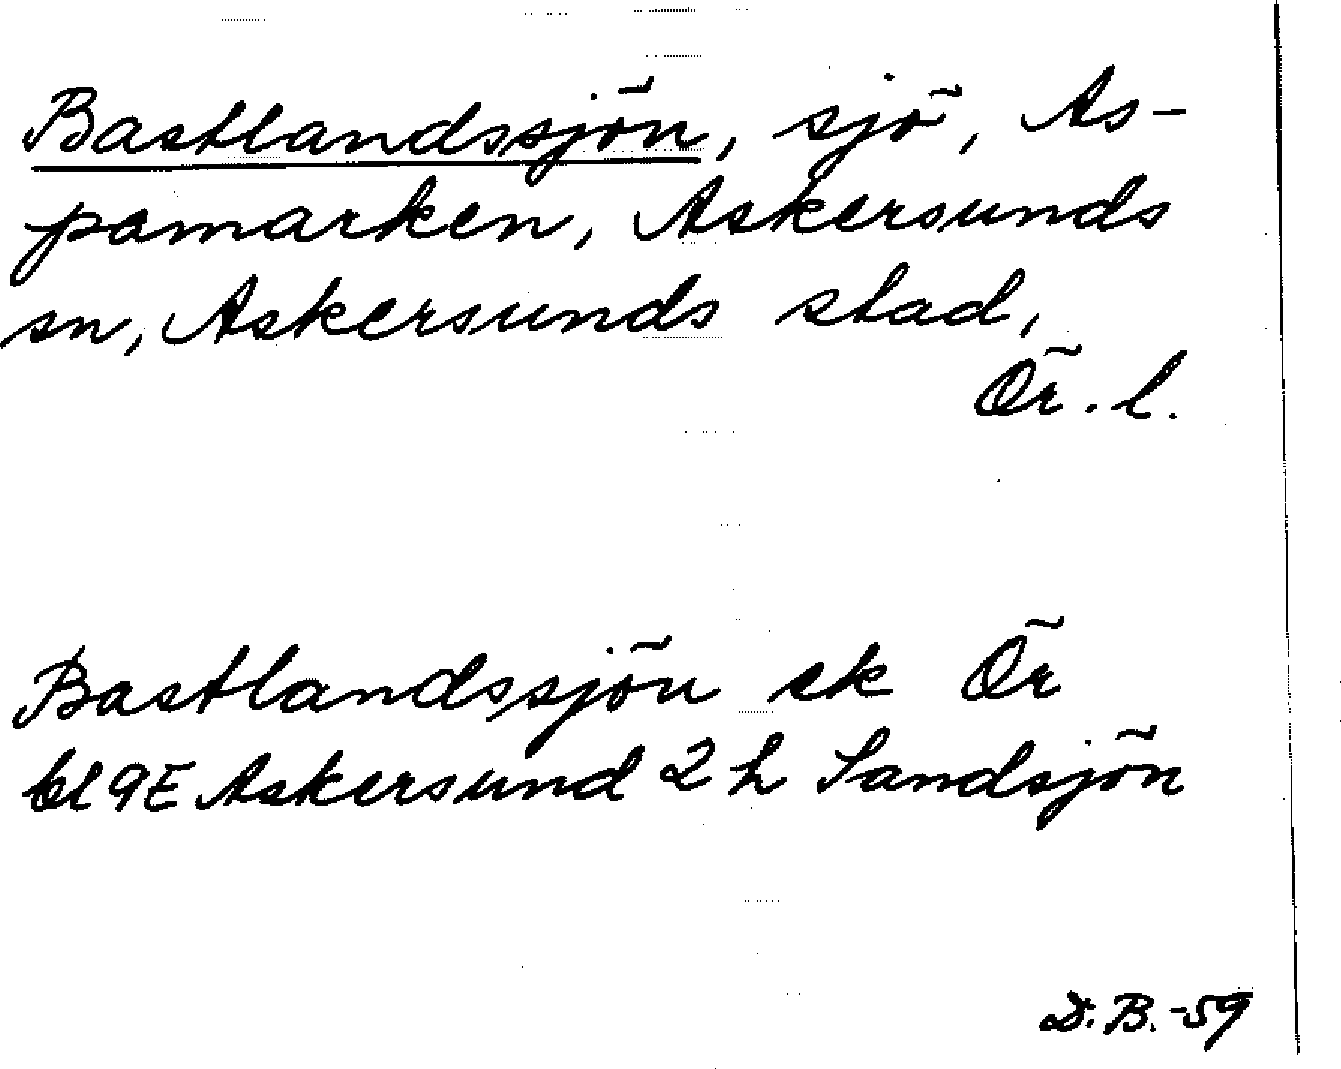 Bastlandssjön, sjö, As-
pamarken, Askersunds
sn, Askersunds stad,
Ör. l.
Bastlandssjön ek Ör
bl 9E Askersund 2 h Sandsjön
D.B.-59